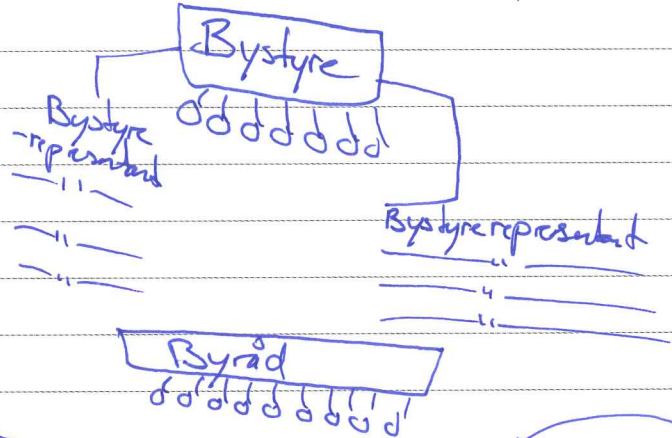 Bystyre
Bystyre
-representant
— " —
— " —
— " —
Bystyrerepresentant
— " —
— " —
— " —
Byråd